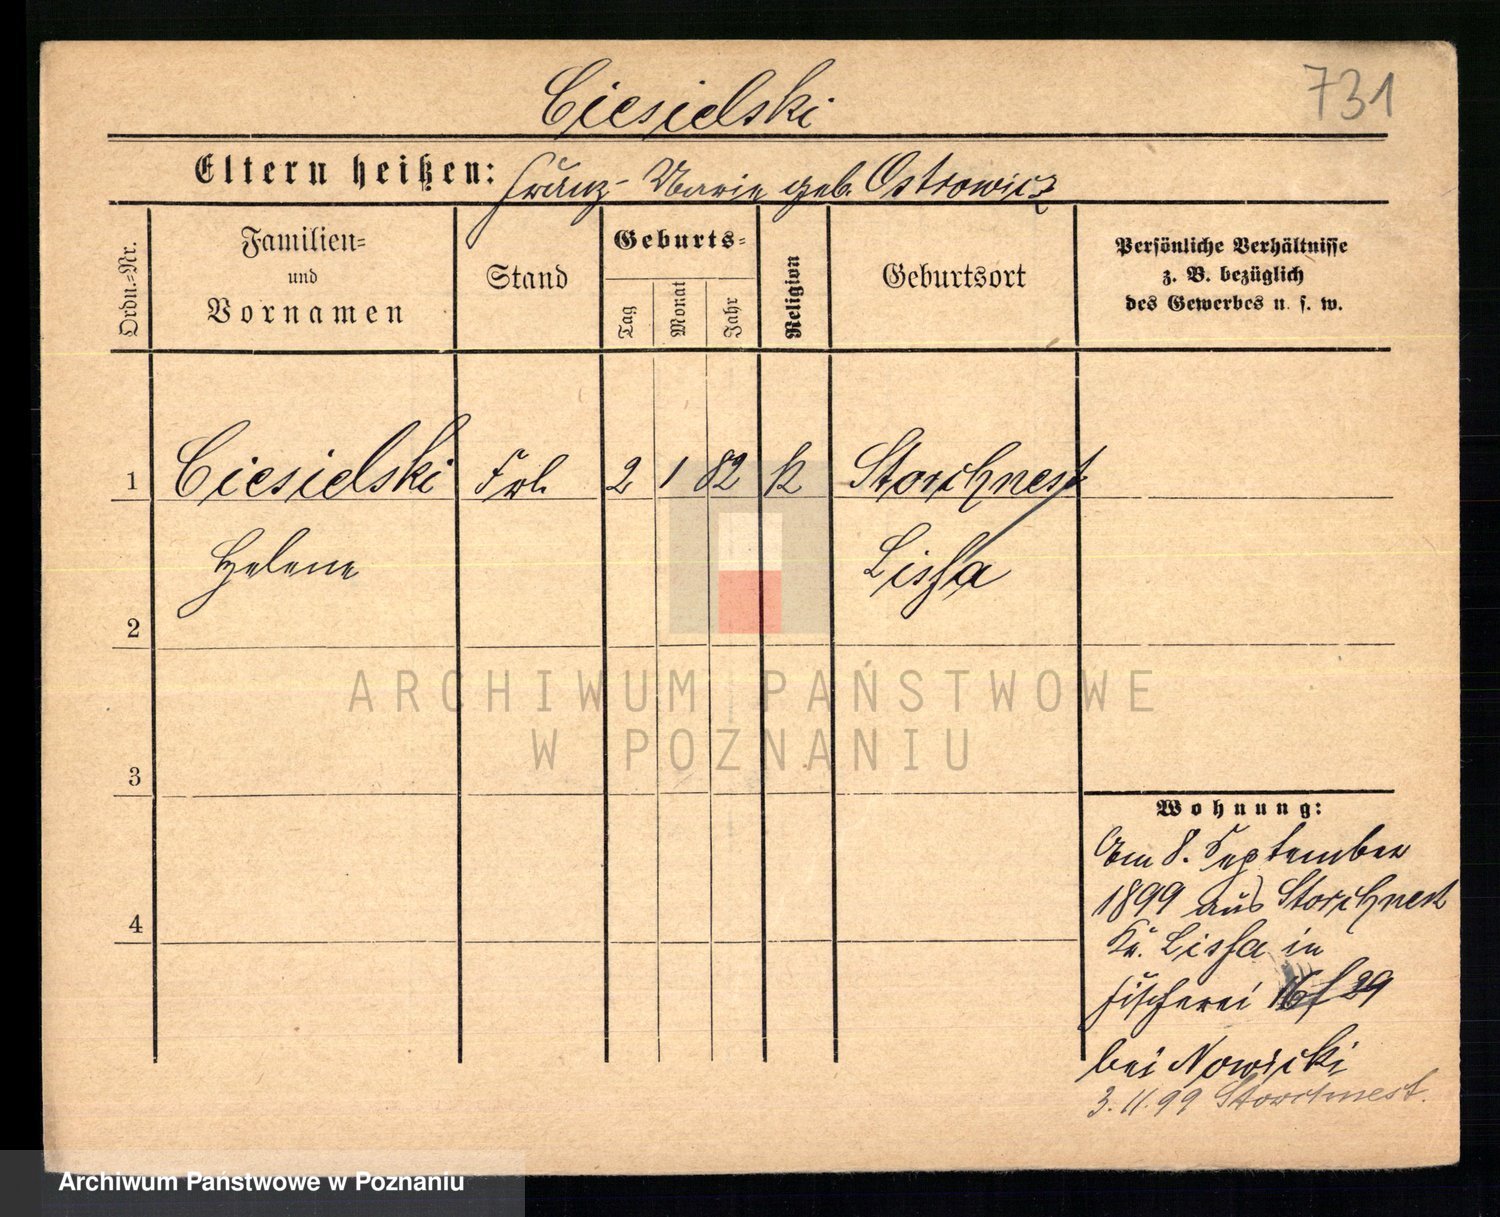 Ciesielski
731
Eltern heißen: Franz - Marie geb. Ostrowicz
Ordn.-Nr.
Familien- und Vornamen
Stand
Geburts-
Tag
Monat
Jahr
Religion
Geburtsort
Persönliche Verhältnisse
z. B. bezüglich
des Gewerbes u. s. w.
1 Ciesielski Frl. 2 1 82 K Storchnest
Helene Lissa
2
ARCHIWUM PAŃSTWOWE
W POZNANIU
3
4
Wohnung:
Am 8. September
1899 aus Storchnest
Kr. Lissa in
Fischerei 29
bei Nowicki
3.11.99 Storchnest.
Archiwum Państwowe w Poznaniu